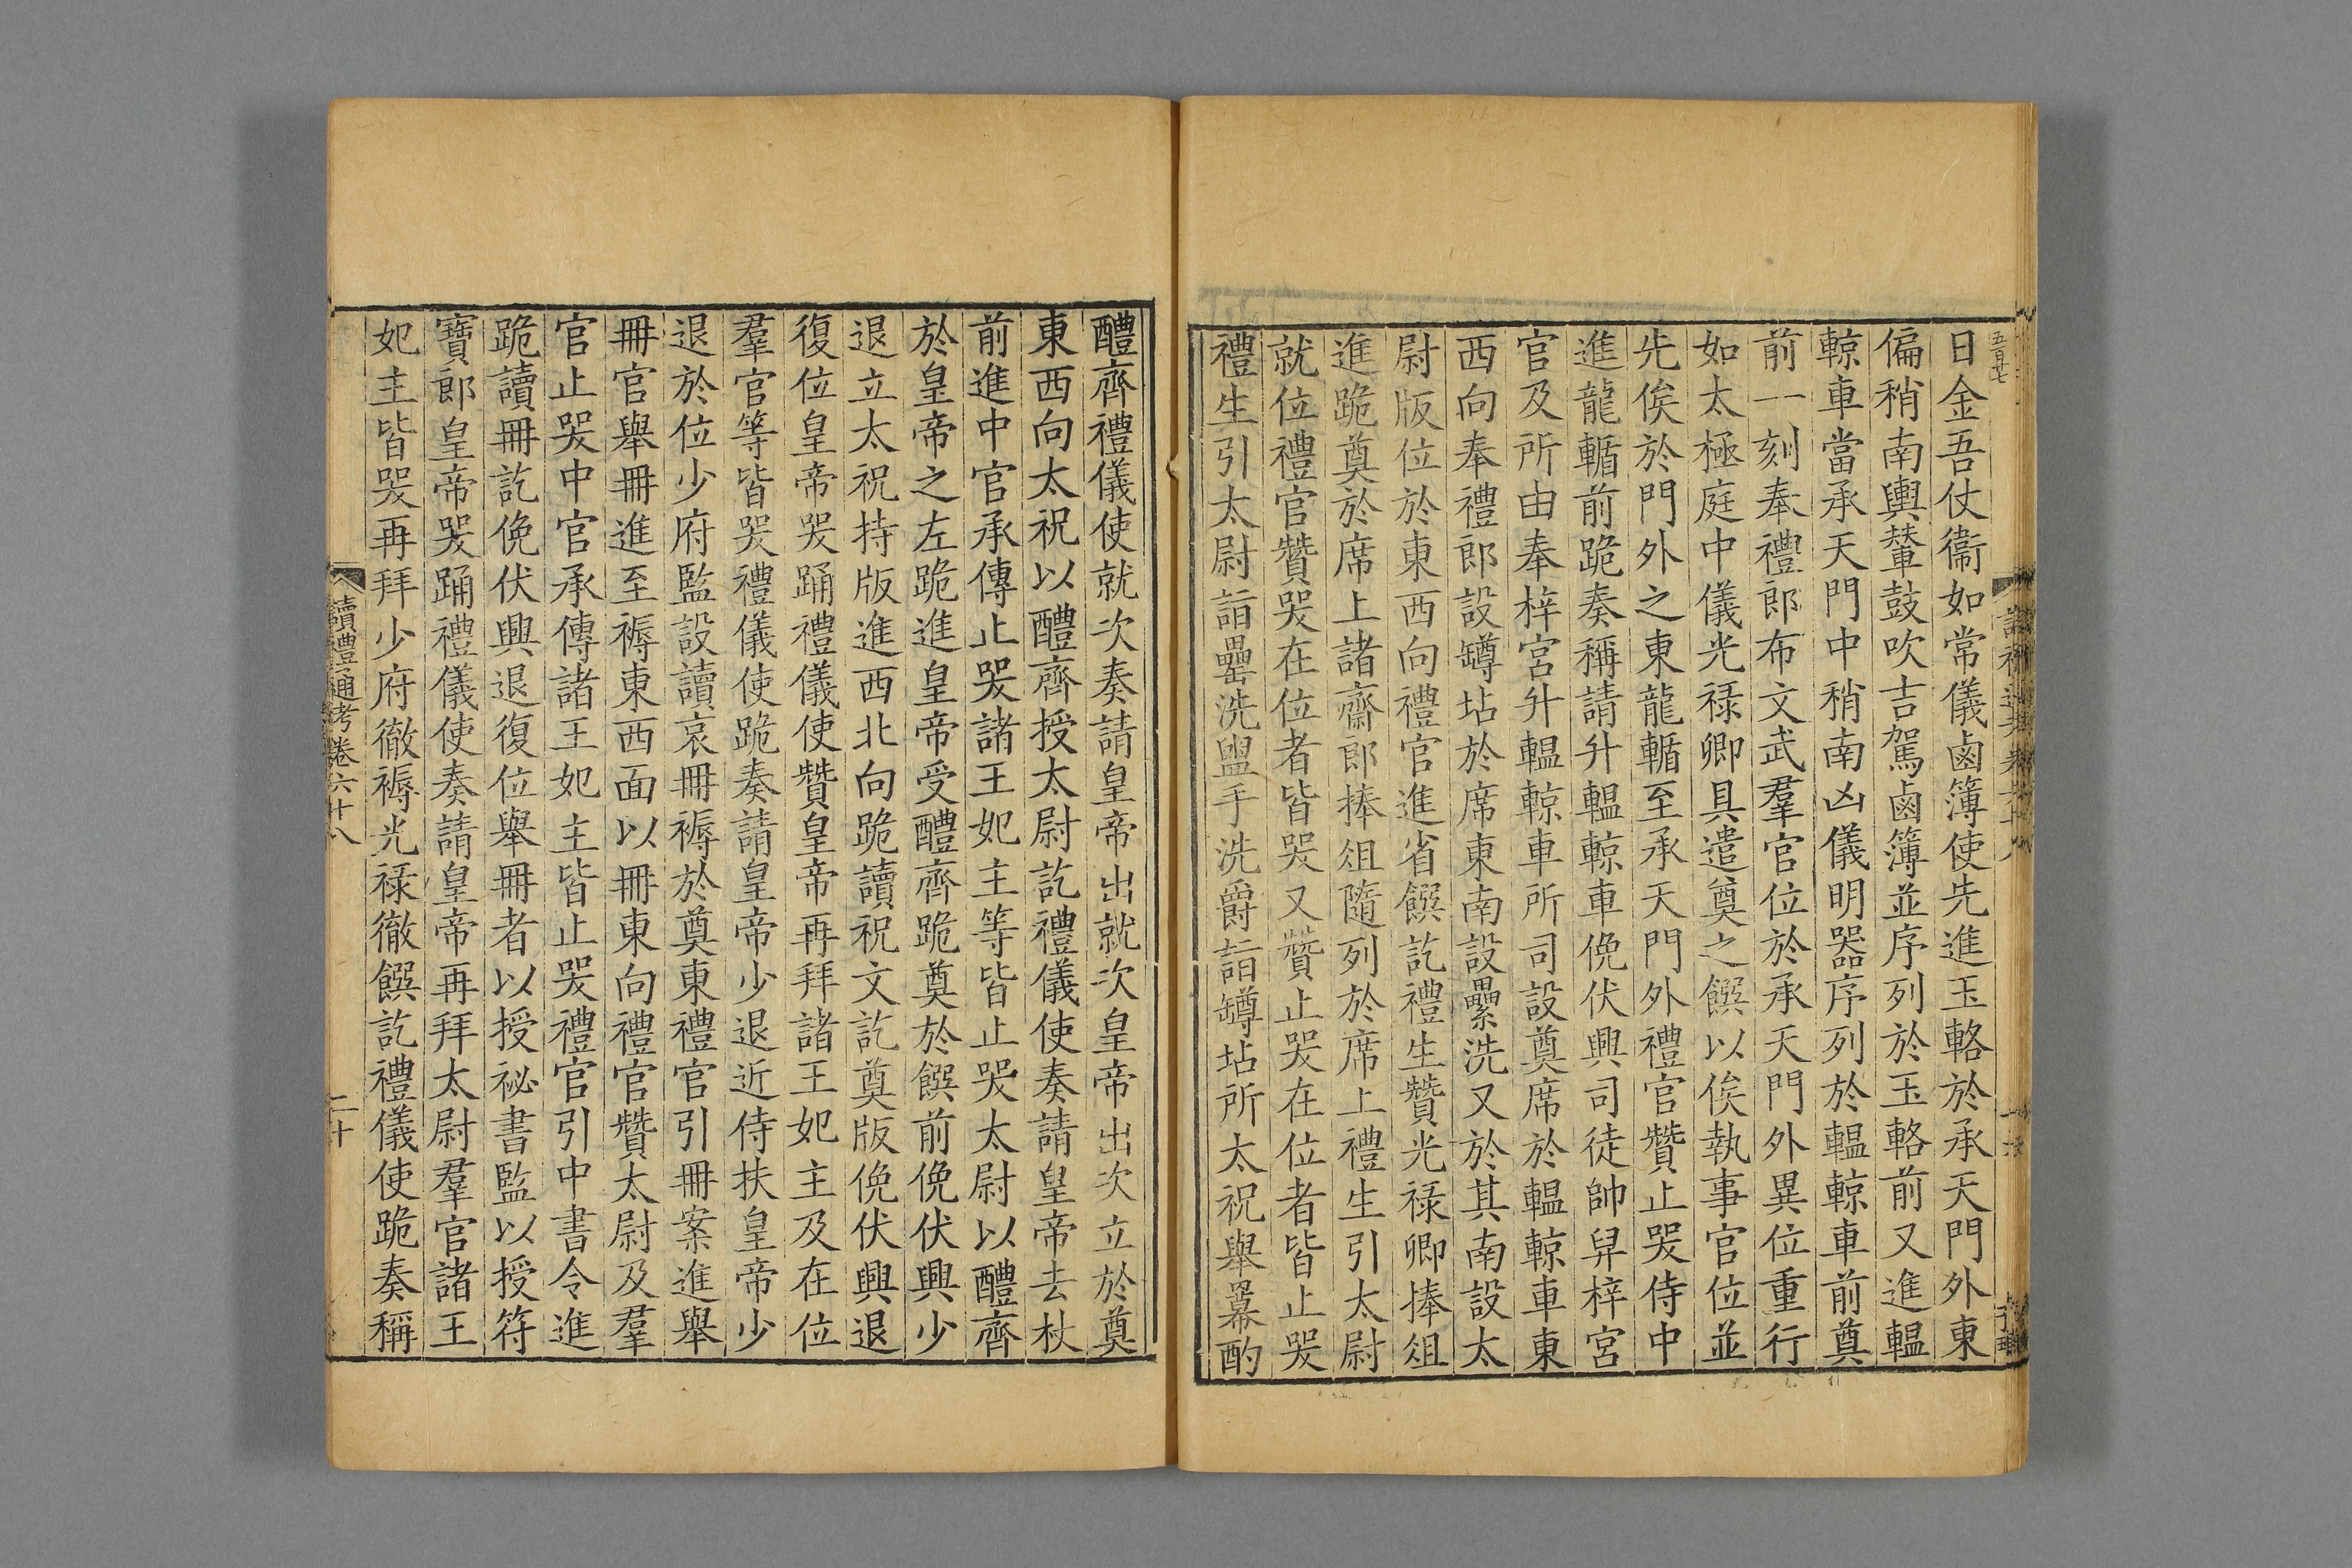 日金吾仗衞如常儀鹵簿使先進玉輅於承天門外東
偏稍南輿輦鼓吹吉駕鹵簿並序列於玉輅前又進轀
輬車當承天門中稍南凶儀明器序列於轀輬車前奠
前一刻奉禮郎布文武羣官位於承天門外異位重行
如太極庭中儀光祿卿具遣奠之饌以俟執事官位並
先俟於門外之東龍輴至承天門外禮官贊止哭侍中
進龍輴前跪奏稱請升轀輬車俛伏興司徒帥舁梓宮
官及所由奉梓宮升轀輬車所司設奠席於轀輬車東
西向奉禮郎設罇坫於席東南設罍洗又於其南設太
尉版位於東西向禮官進省饌訖禮生贊光祿卿捧俎
進跪奠於席上諸齋郎捧俎隨列於席上禮生引太尉
就位禮官贊哭在位者皆哭又贊止哭在位者皆止哭
禮生引太尉詣罍洗盥手洗爵詣罇坫所太祝舉羃酌
醴齊禮儀使就次奏請皇帝出就次皇帝出次立於奠
東西向太祝以醴齊授太尉訖禮儀使奏請皇帝去杖
前進中官承傳止哭諸王妃主等皆止哭太尉以醴齊
於皇帝之左跪進皇帝受醴齊跪奠於饌前俛伏興少
退立太祝持版進西北向跪讀祝文訖奠版俛伏興退
復位皇帝哭踊禮儀使贊皇帝再拜諸王妃主及在位
羣官等皆哭禮儀使跪奏請皇帝少退近侍扶皇帝少
退於位少府監設讀哀冊褥於奠東禮官引冊案進舉
冊官舉冊進至褥東西面以冊東向禮官贊太尉及羣
官止哭中官承傳諸王妃主皆止哭禮官引中書令進
跪讀冊訖俛伏興退復位舉冊者以授祕書監以授符
寶郎皇帝哭踊禮儀使奏請皇帝再拜太尉羣官諸王
妃主皆哭再拜少府徹褥光祿徹饌訖禮儀使跪奏稱
讀禮通考卷六十八
二十